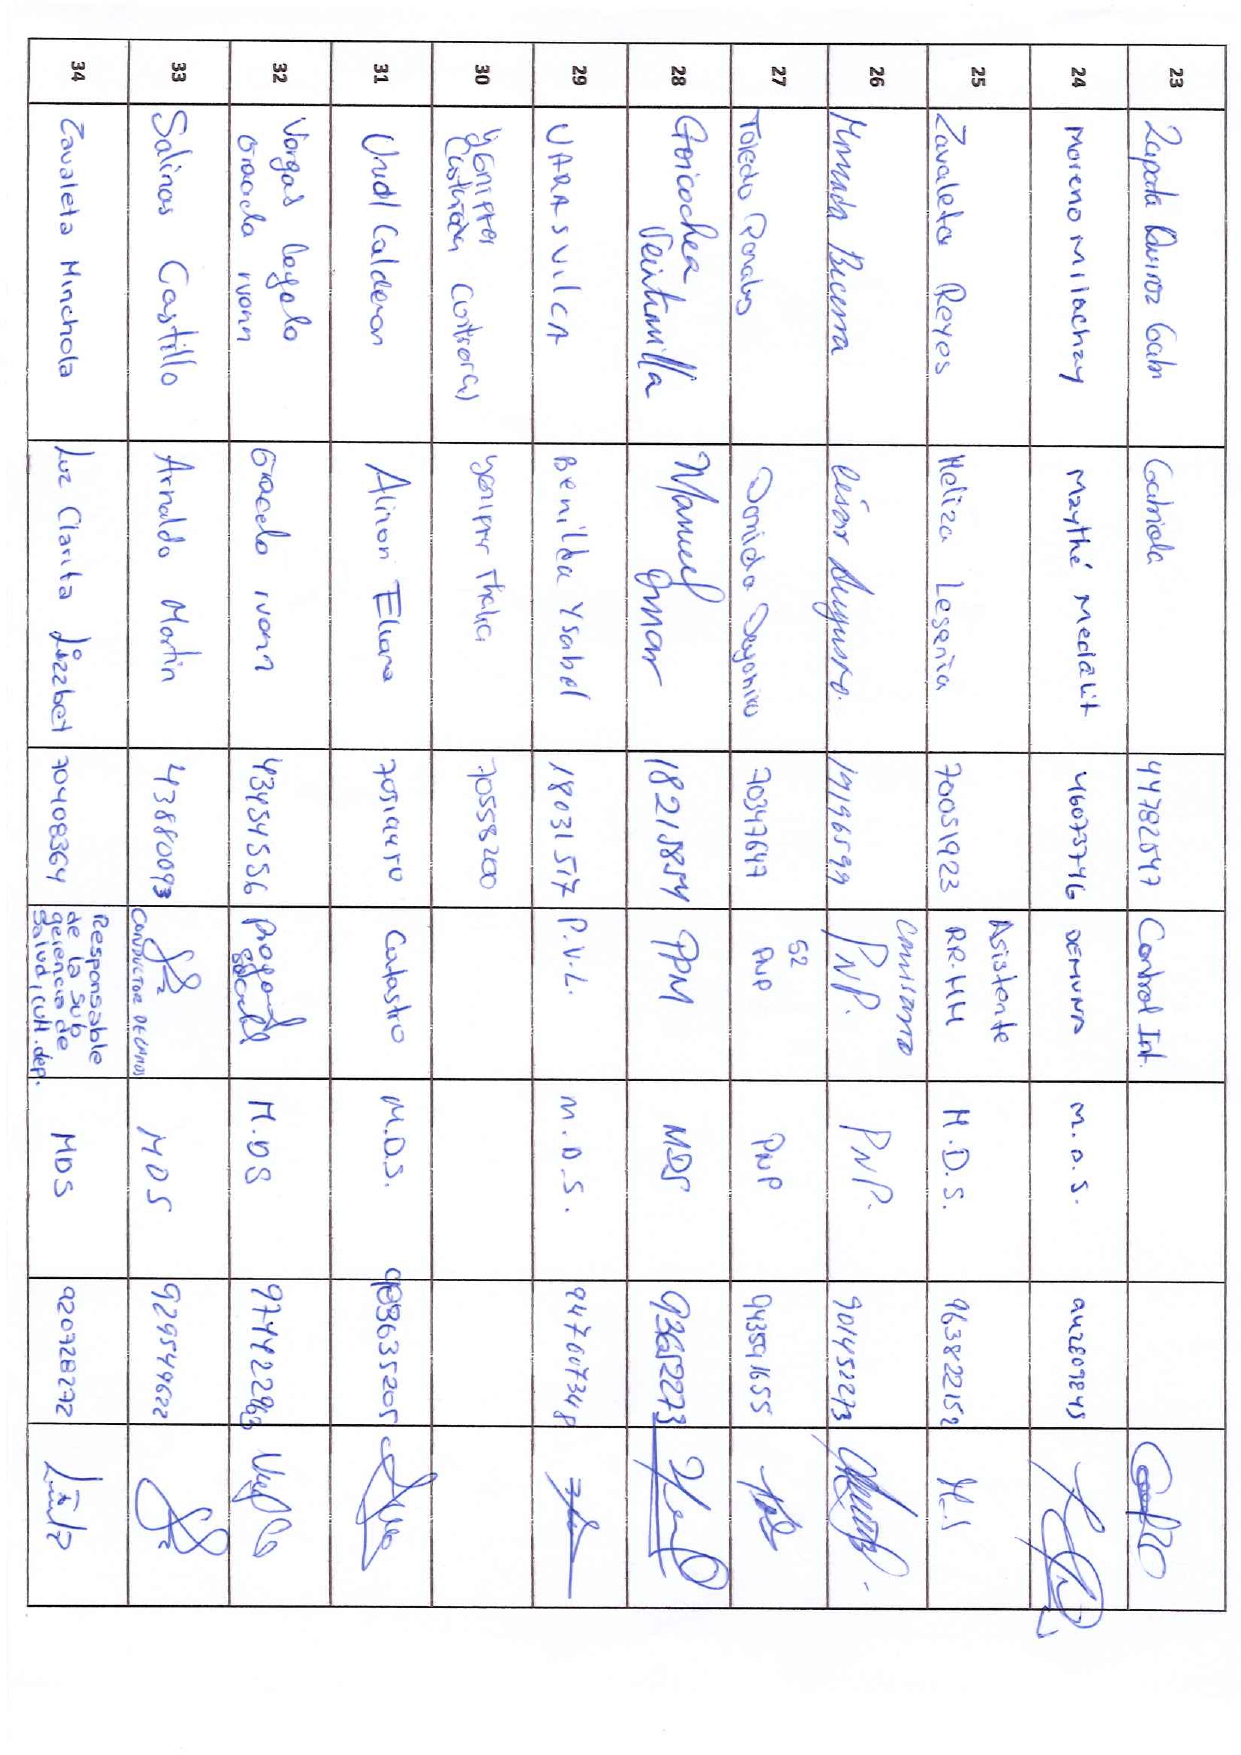 23 Zapata Quiroz Gabr Gabriela 44782547 Control Int.
24 Moreno Milachay Maythé Medalit 46073746 DEMUNA M.D.S. 942809845
25 Zavaleta Reyes Meliza Lesenia 70051923 Asistente
RR.HH M.D.S. 963822152
26 Miranda Becerra César Augusto. 19196599 Comisario
PNP. PNP. 901452273
27 Toledo Rosales 70347647 S2
PNP PNP 943541655
28 Goicochea
Veintimilla Manuel
Omar 18215854 PPM MDS 93652273
29 VARAS VILCA Benilda Ysabel 18031517 P.V.L. M.D.S. 947007348
30 Yenifer
Castañeda Contreras Yenifer Thalia 70558200
31 Calderon Alison Eliana Catastro M.D.S.
32 Vargas Cayelo
Graciela Ivonn Graciela Ivonn 43454556 Programa
Social M.DS
33 Salinas Castillo Arnaldo Martin 43880093 CONDUCTOR DE CAMION MDS 929549622
34 Zavaleta Minchola Luz Clarita Lizzbet 70408364 Responsable
de la sub
gerencia de
Salud, cult. dep. MDS 920728272